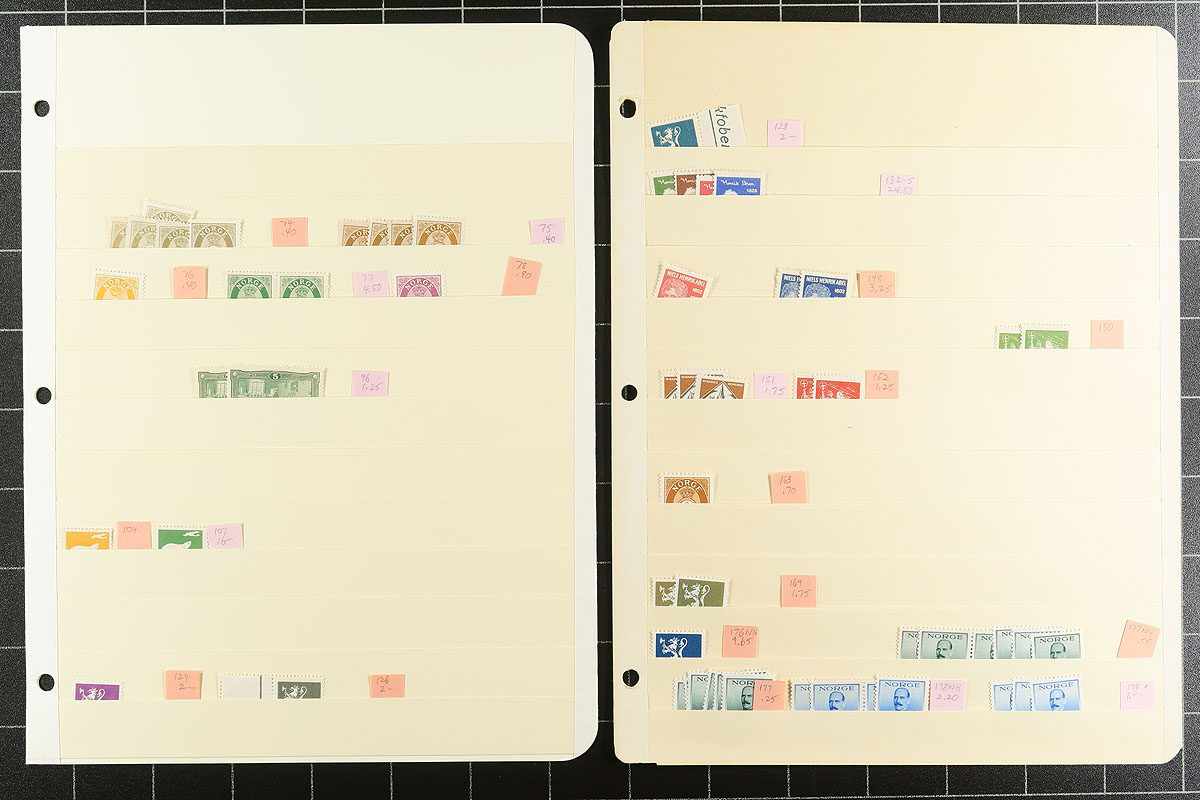 74
.40
75
.40
NORGE
NORGE
NORGE
76
.40
NORGE
NORGE
NORGE
77
4.50
NORGE
78
.80
5
96
1.25
104
107
16-
124
2-
126
2-
ktober
128
2-
Henrik Ibsen
1828
132-5
24.50
NIELS HENRIK ABEL
1802
NIELS HENRIK ABEL
1802
148
3.25
150
151
1.75
152
1.25
NORGE
163
.70
169
1.75
176NH
9.65
NORGE
NORGE
177NH
NORGE
177
.25
NORGE
NORGE
178NH
2.20
NORGE